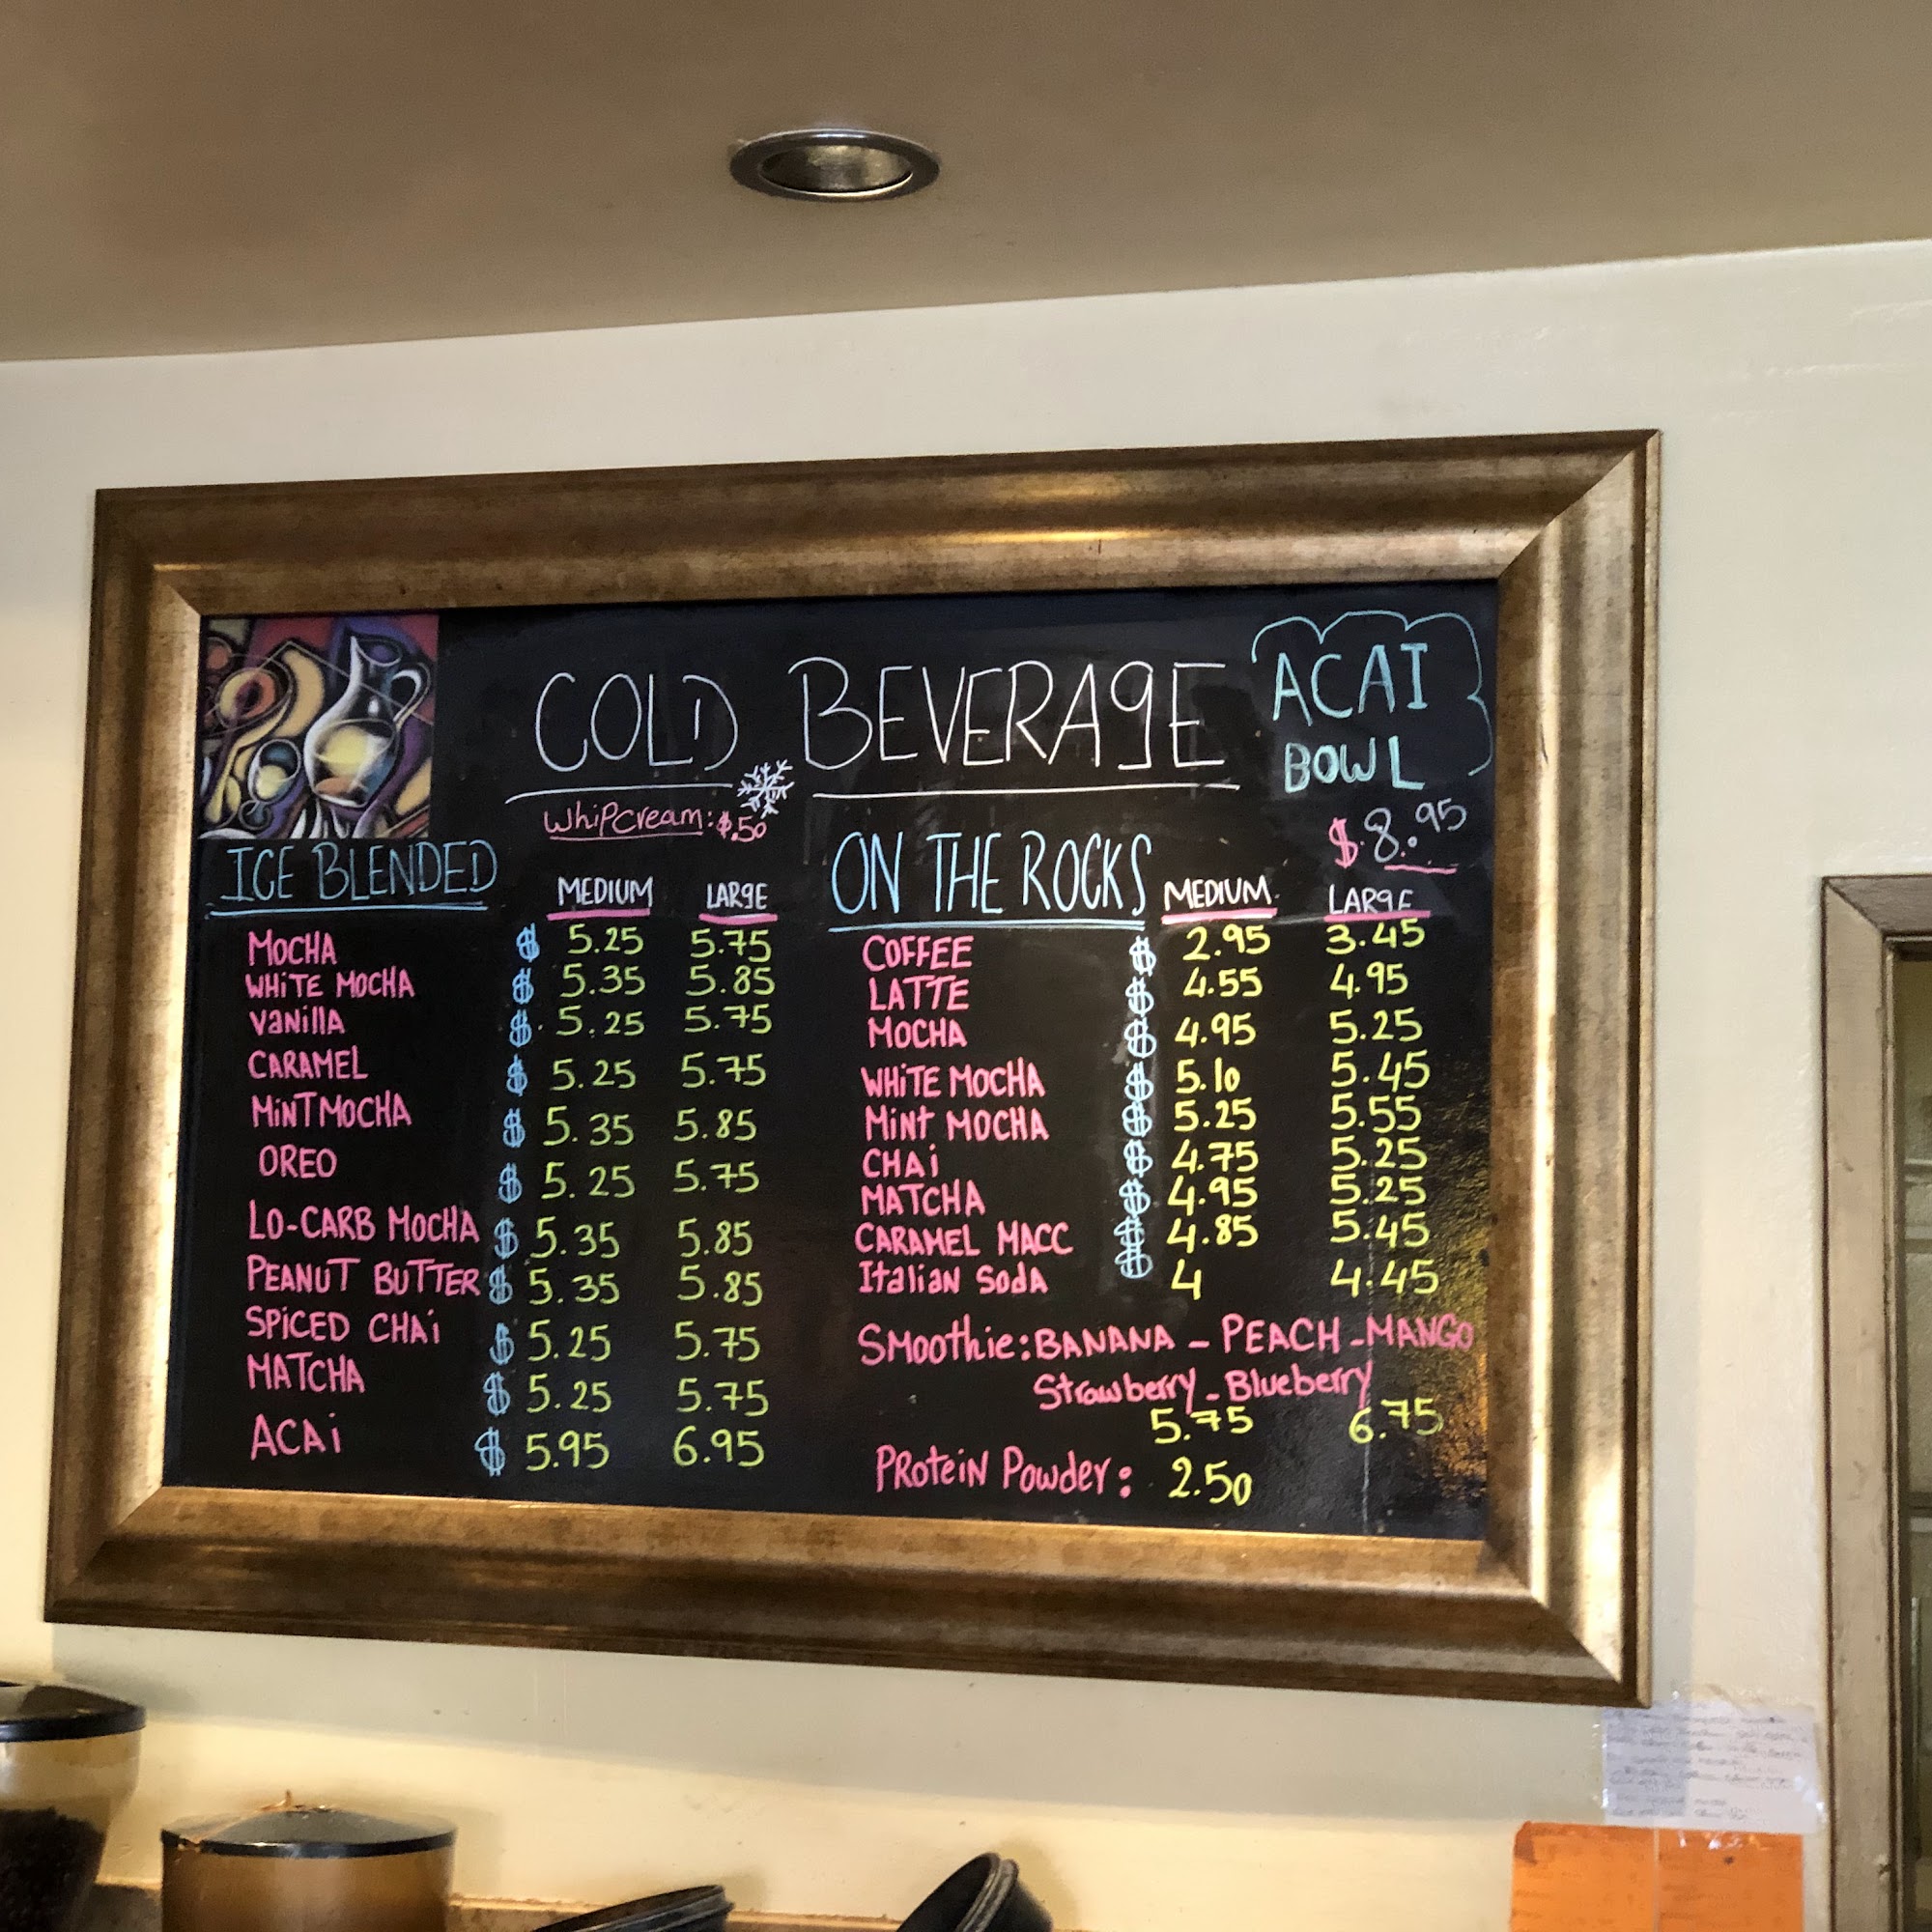 COLD BEVERAGE
ACAI
BOWL
$8.95
WhiPcream: $.50
ICE BLENDED MEDIUM LARGE
MOCHA $ 5.25 5.75
WHITE MOCHA $ 5.35 5.85
vanilla $ 5.25 5.75
CARAMEL $ 5.25 5.75
MiNT MOCHA $ 5.35 5.85
OREO $ 5.25 5.75
LO-CARB MOCHA $ 5.35 5.85
PEANUT BUTTER $ 5.35 5.85
SPiCED CHAi $ 5.25 5.75
MATCHA $ 5.25 5.75
ACAi $ 5.95 6.95
ON THE ROCKS MEDIUM LARGE
COFFEE $ 2.95 3.45
LATTE $ 4.55 4.95
MOCHA $ 4.95 5.25
WHiTE MOCHA $ 5.10 5.45
Mint MOCHA $ 5.25 5.55
CHAi $ 4.75 5.25
MATCHA $ 4.95 5.25
CARAMEL MACC $ 4.85 5.45
Italian Soda $ 4 4.45
Smoothie: BANANA - PEACH - MANGO
Strawberry - Blueberry
5.75 6.75
PRotein Powder: 2.50